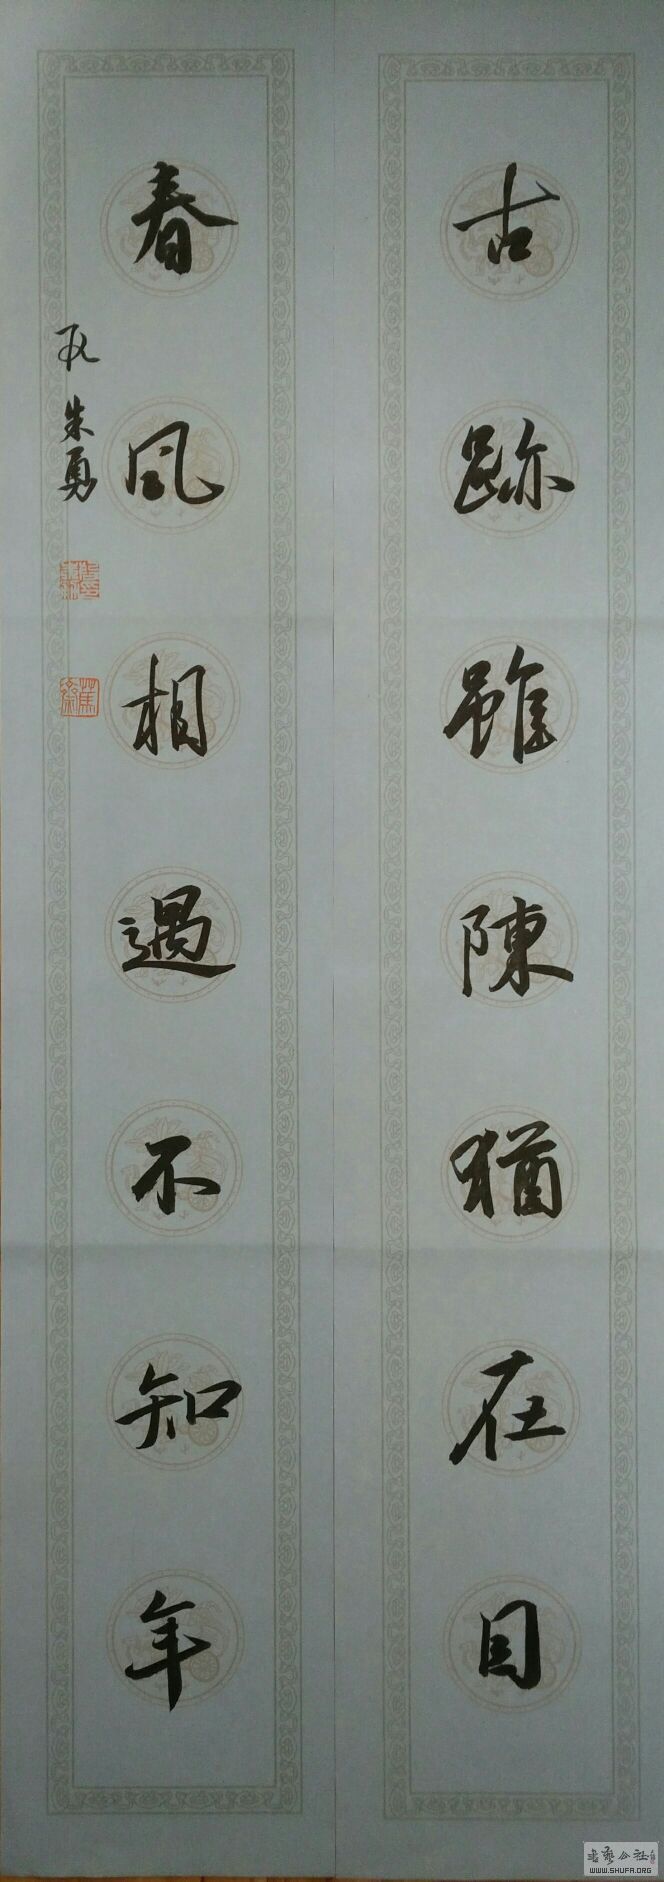 古跡雖陳猶在目
春風相遇不知年
朱勇
WWW.SHUFA.ORG